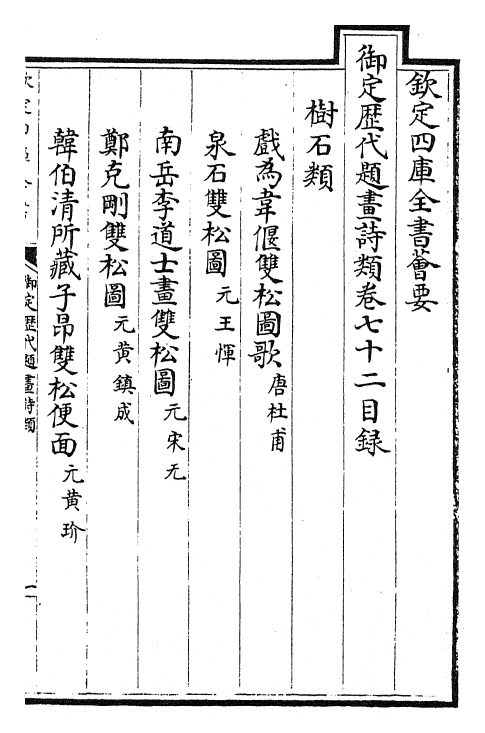 欽定四庫全書薈要
御定歷代題畫詩類卷七十二目録
樹石類
戲為韋偃雙松圖歌 唐杜甫
泉石雙松圖 元王惲
南岳李道士畫雙松圖 元宋无
鄭克剛雙松圖 元黄鎮成
韓伯清所藏子昂雙松便面 元黄玠
御定歷代題畫詩類
一